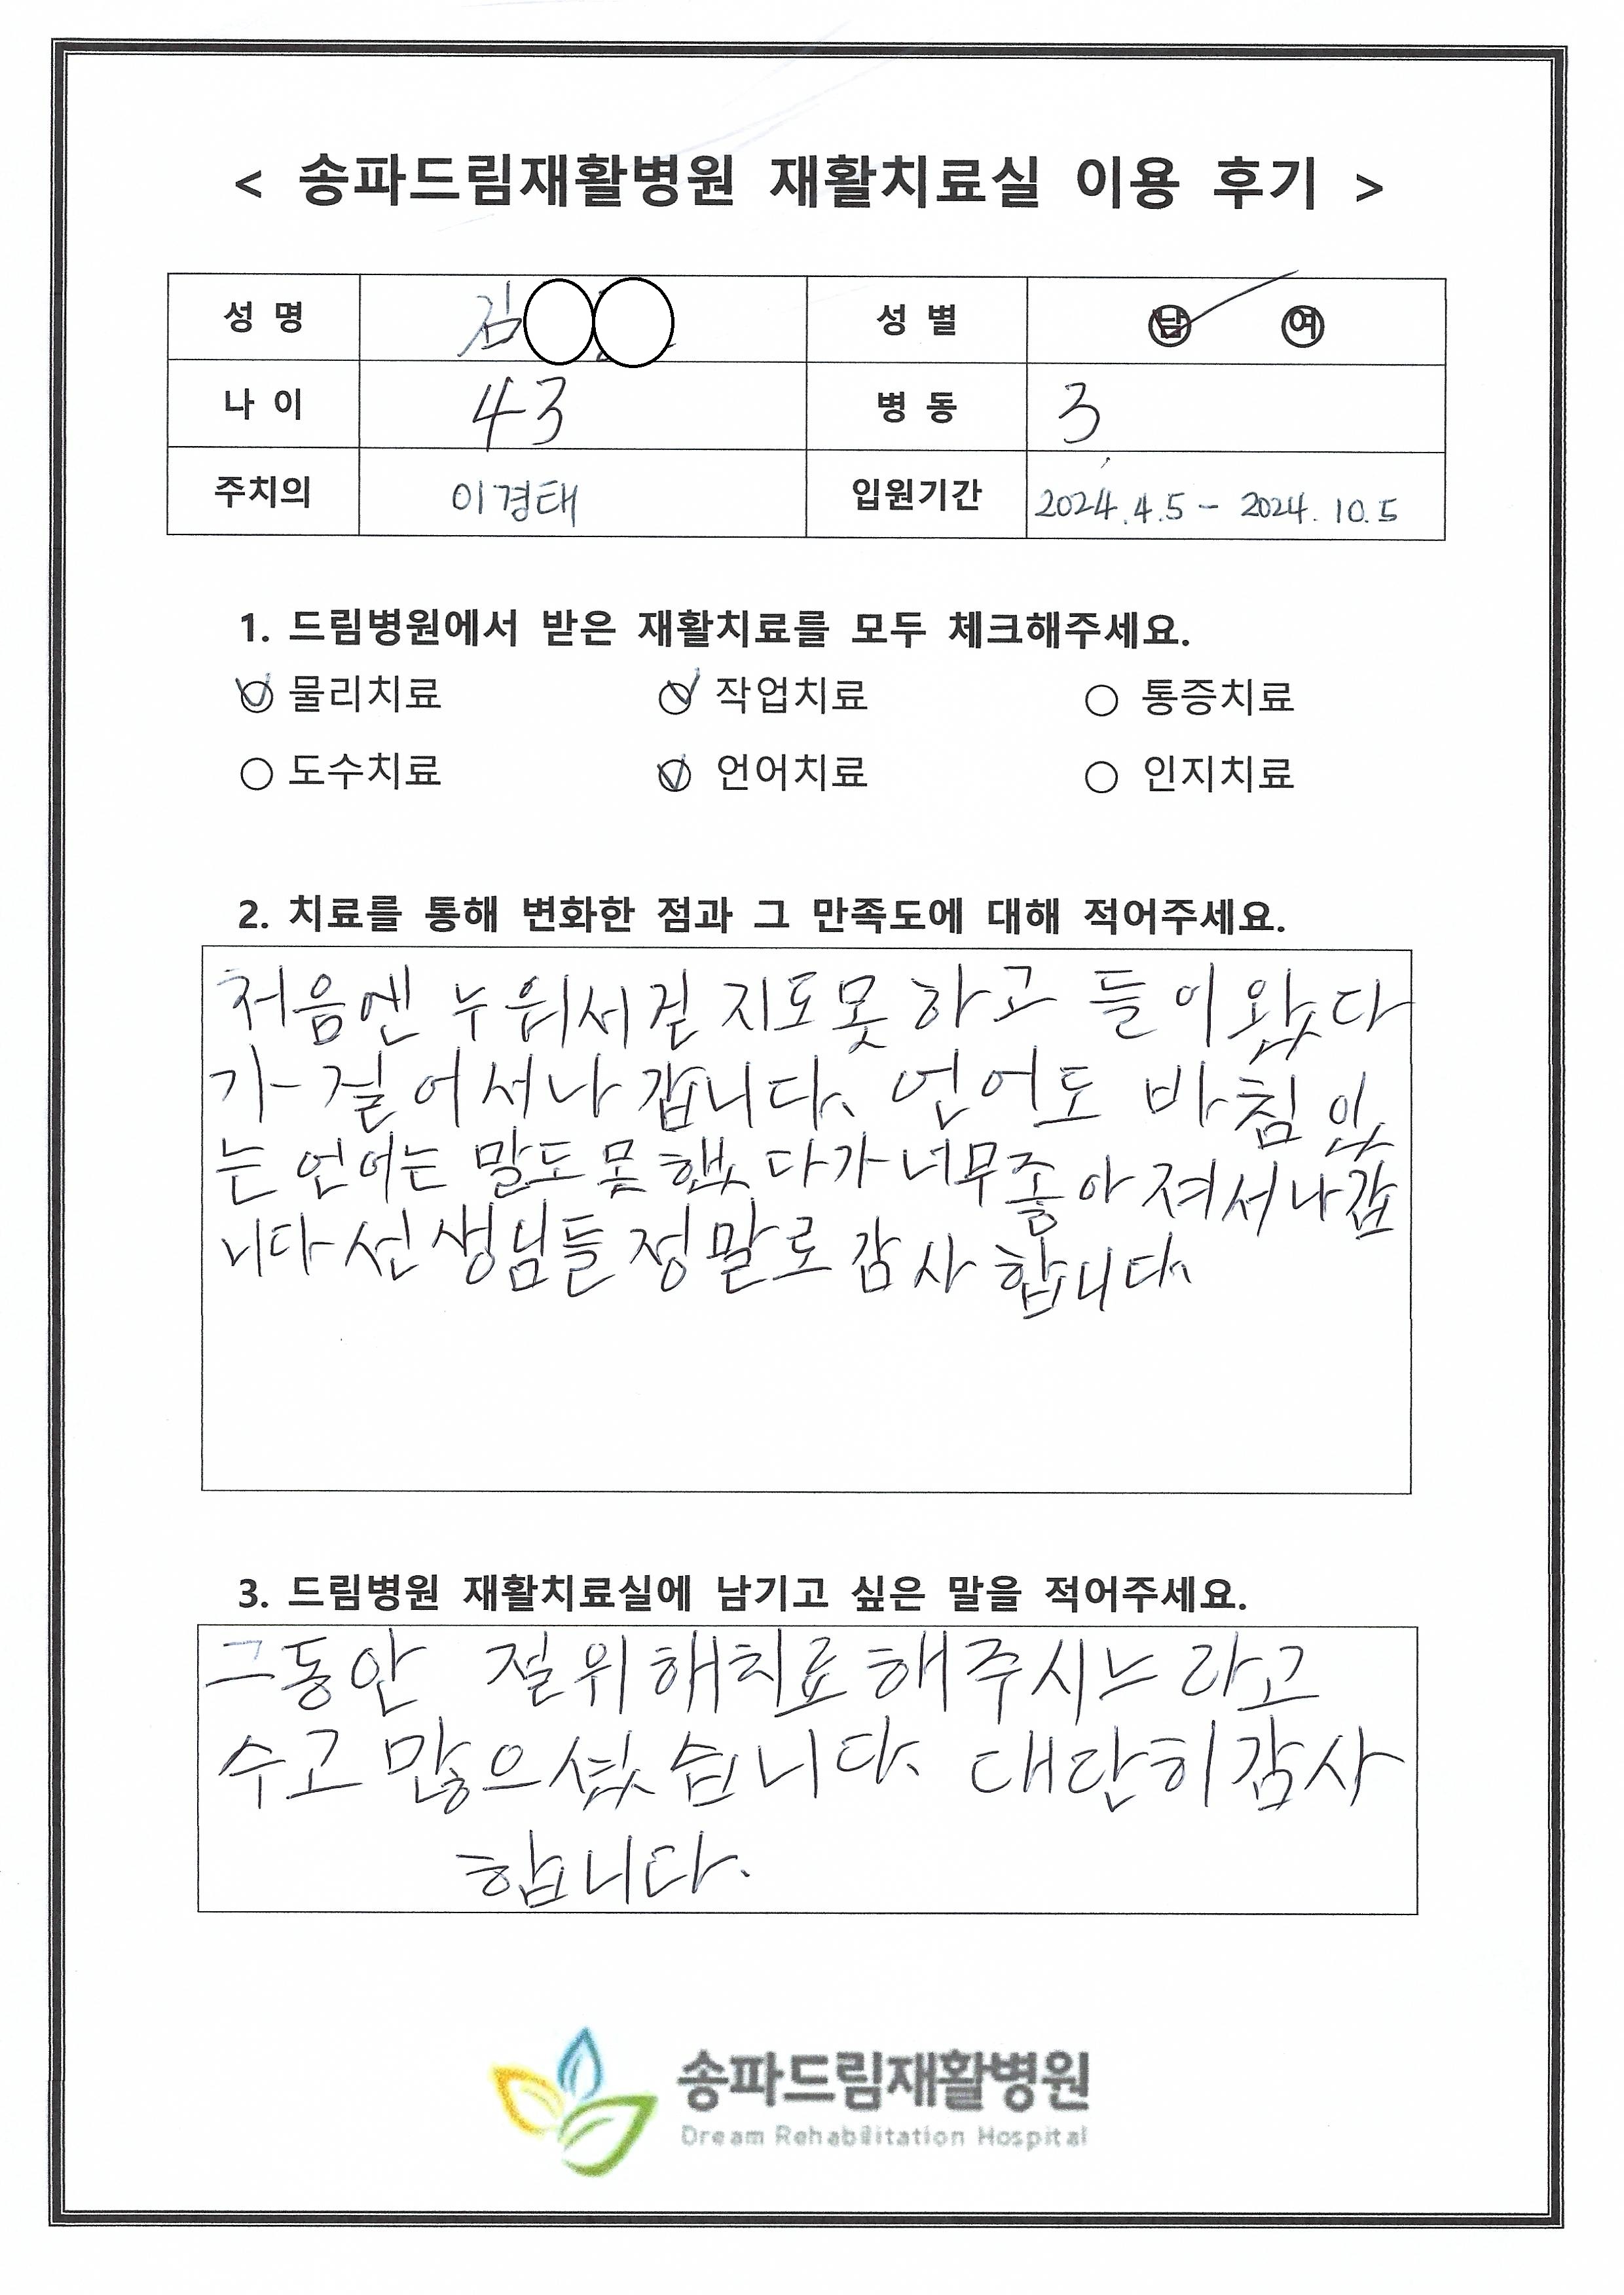 < 송파드림재활병원 재활치료실 이용 후기 >
성 명 김 성 별 남 여
나 이 43 병 동 3
주치의 이경태 입원기간 2024.4.5 - 2024.10.5
1. 드림병원에서 받은 재활치료를 모두 체크해주세요.
물리치료 작업치료 통증치료
도수치료 언어치료 인지치료
2. 치료를 통해 변화한 점과 그 만족도에 대해 적어주세요.
처음엔 누워서걷지도못하고 들이왔다
가 걸어서나갑니다. 언어도 바침있
는 언어는 말도못했다가너무좋아져서나갑
니다선생님들정말로감사합니다.
3. 드림병원 재활치료실에 남기고 싶은 말을 적어주세요.
그동안 절위해치료해주시느라고
수고많으셨습니다. 대단히감사
합니다.
송파드림재활병원
Dream Rehabilitation Hospital